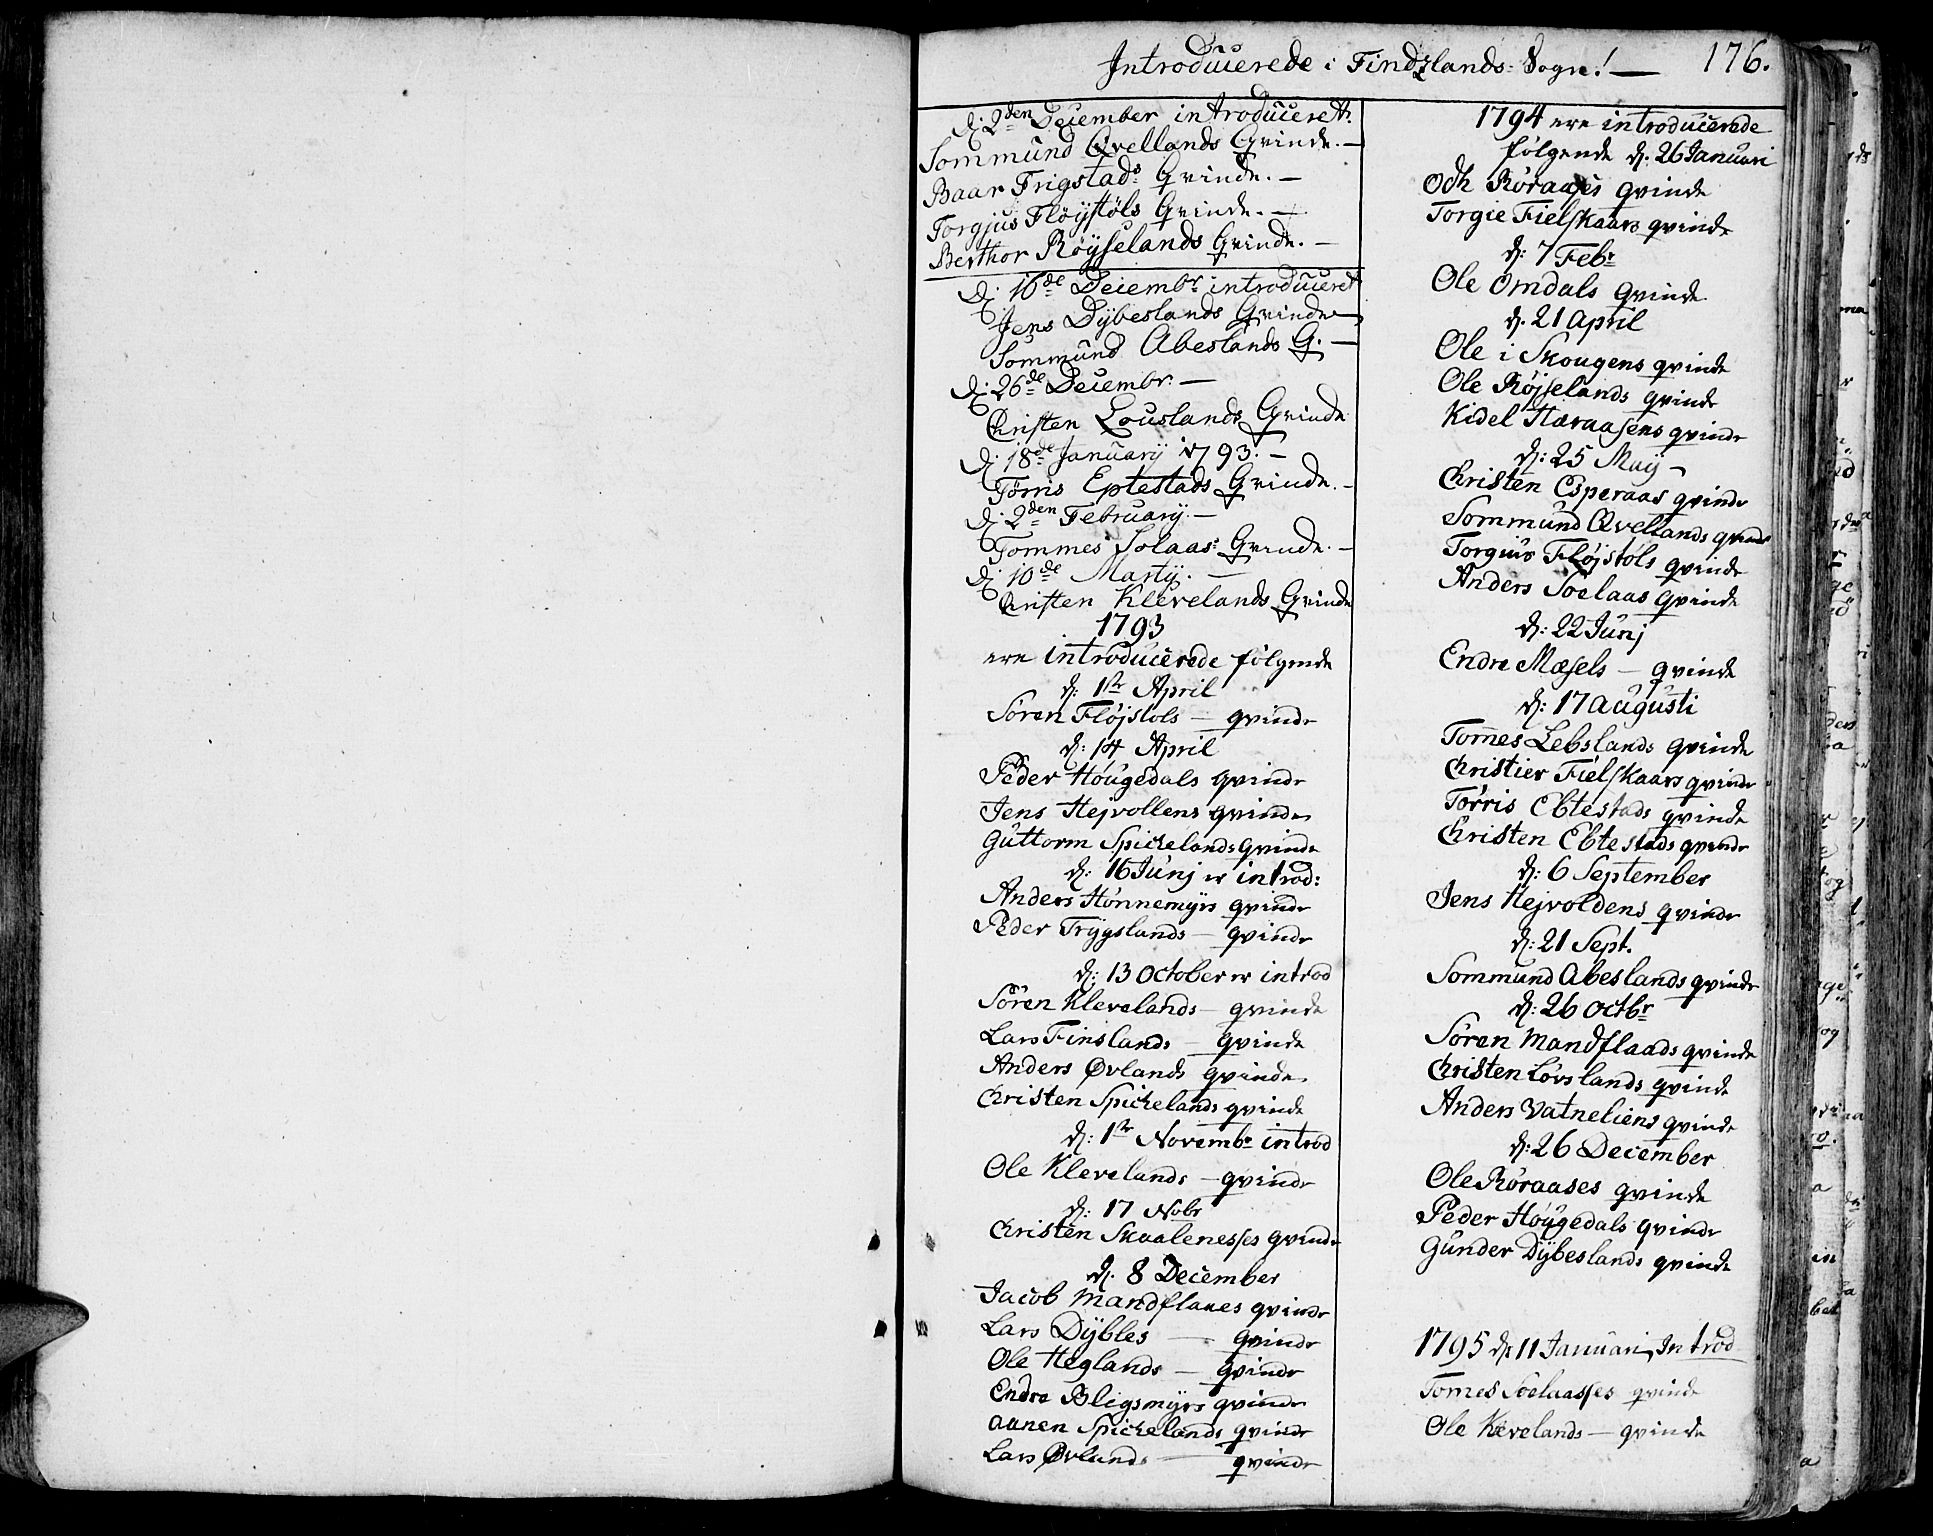 Introducerede i Findzlands Sogn! — 176.
d: 2den December introduceret.
Sommund Qvellands Qvinde. —
Baar Frigstads Qvinde. —
Torgjus Fløystøls Qvinde. —
Berthor Røyselands Qvinde. —
d: 16de Decembr introduceret
Jens Dybeslands Qvinde —
Sommund Abeslands Q. —
d: 26de Decembr. —
Christen Louslands Qvinde
d: 18de January 1793. —
Tørris Eptestads Qvinde. —
d: 2den February. —
Tommes Solaas: Qvinde. —
d: 10de Martij. —
Christen Klevelands Qvinde
1793
ere introducerede følgende
d: 1ste April
Søren Fløjstøls — qvinde
d: 14 April
Peder Høugedals qvinde
Jens Hejvollens qvinde
Guttorm Spichelands qvinde
d: 16 Junj er introd:
Anders Hønnemyrs qvinde
Peder Trygslands — qvinde
d: 13 October er introd
Søren Klevelands — qvinde
Lars Finslands — qvinde
Anders Øvlands qvinde
Christen Spichelands qvinde
d: 1ste Novembr introd
Ole Klevelands — qvinde
d: 17 Nobr
Christen Skaalenesses qvinde
d. 8 December
Jacob Mandflaaes qvinde
Lars Dybles — qvinde
Ole Heglands — qvinde
Endre Bligsmyrs qvinde
Aanen Spichelands qvinde
Lars Øvlands — qvinde
1794 ere introducerede
følgende d: 26 Januari
Och Røraases qvinde
Torgie Fielskaars qvinde
d: 7 Febr
Ole Omdals qvinde
d. 21 April
Ole i Skougens qvinde
Ole Røjselands qvinde
Kidel Haraasens qvinde
d: 25 May —
Christen Esperaas qvinde
Sommund Qvellands qvinde
Torgius Fløjstøls qvinde
Anders Soelaas qvinde
d: 22 Junj
Endre Mæsels — qvinde
d: 17 Augusti
Tomes Lebslands qvinde
Christier Fielskaars qvinde
Tørris Ebtestads qvinde
Christen Ebtestads qvinde
d: 6 September
Jens Hejvoldens qvinde
d: 21 Sept.
Sommund Abeslands qvinde
d: 26 Octbr
Søren Mandflaads qvinde
Christen Løvslands qvinde
Anders Vatneliens qvinde
d: 26 December
Ole Røraases qvinde
Peder Høugedals qvinde
Gunder Dybeslands qvinde
1795 d: 11 Januari Introd
Tomes Soelaasses qvinde
Ole Klevelands — qvinde